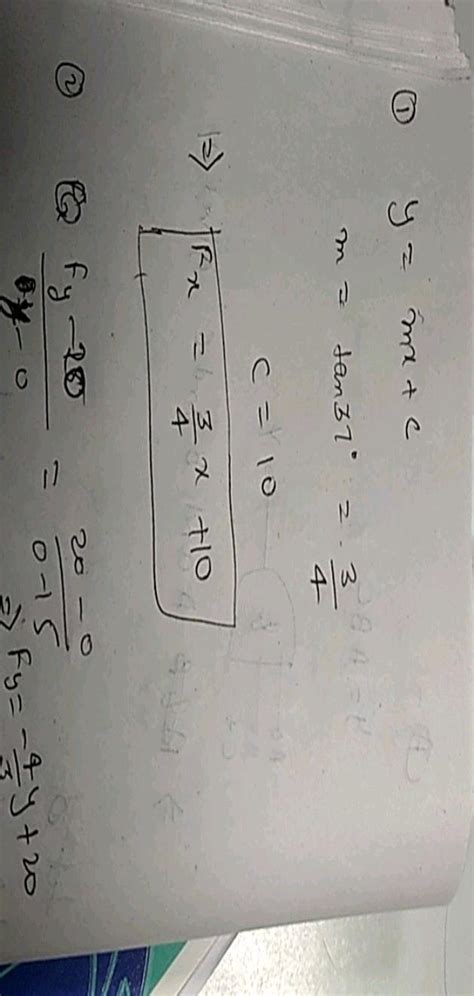 ① y = mx + c
m = tan37° = 3/4
c = 10
⇒ Fx = 3/4 x + 10
② (Fy - 20)/(y - 0) = (20 - 0)/(0 - 15)
⇒ Fy = -4/3 y + 20